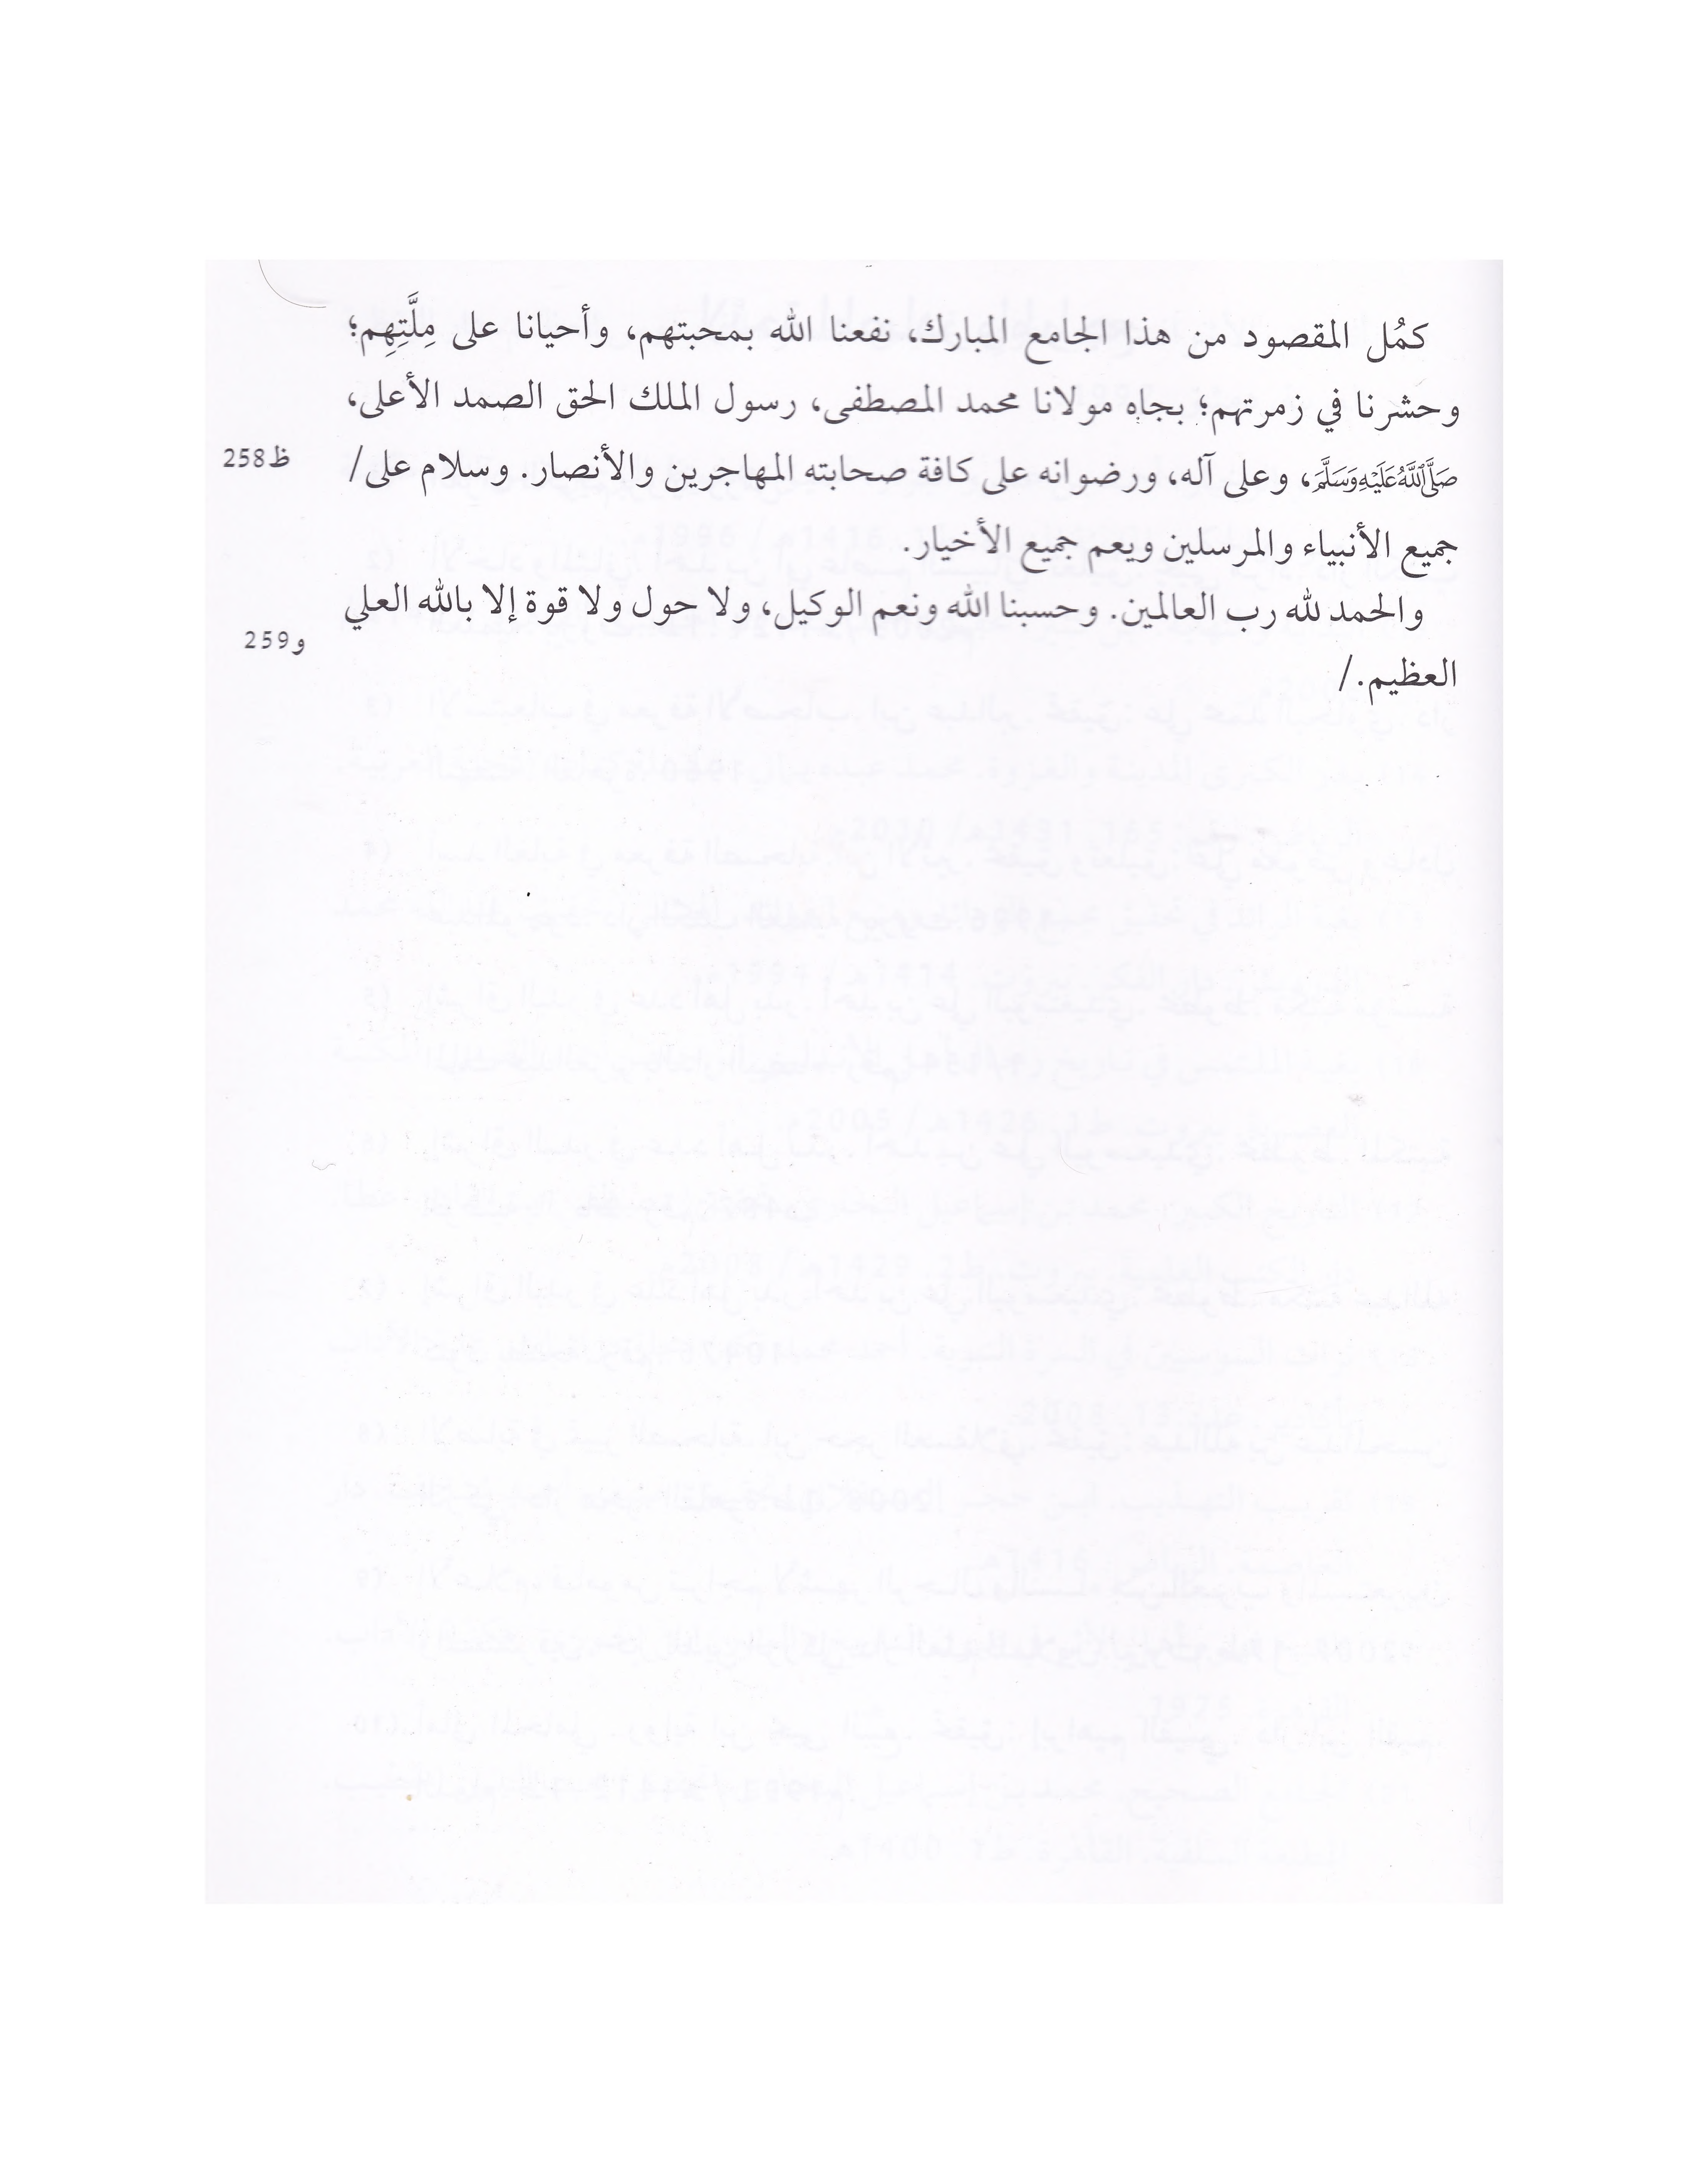 كمُل المقصود من هذا الجامع المبارك، نفعنا الله بمحبتهم، وأحيانا على مِلَّتِهِم؛
وحشرنا في زمرتهم؛ بجاه مولانا محمد المصطفى، رسول الملك الحق الصمد الأعلى،
ﷺ، وعلى آله، ورضوانه على كافة صحابته المهاجرين والأنصار. وسلام على/
ظ258
جميع الأنبياء والمرسلين ويعم جميع الأخيار.
والحمد لله رب العالمين. وحسبنا الله ونعم الوكيل، ولا حول ولا قوة إلا بالله العلي
و259
العظيم./